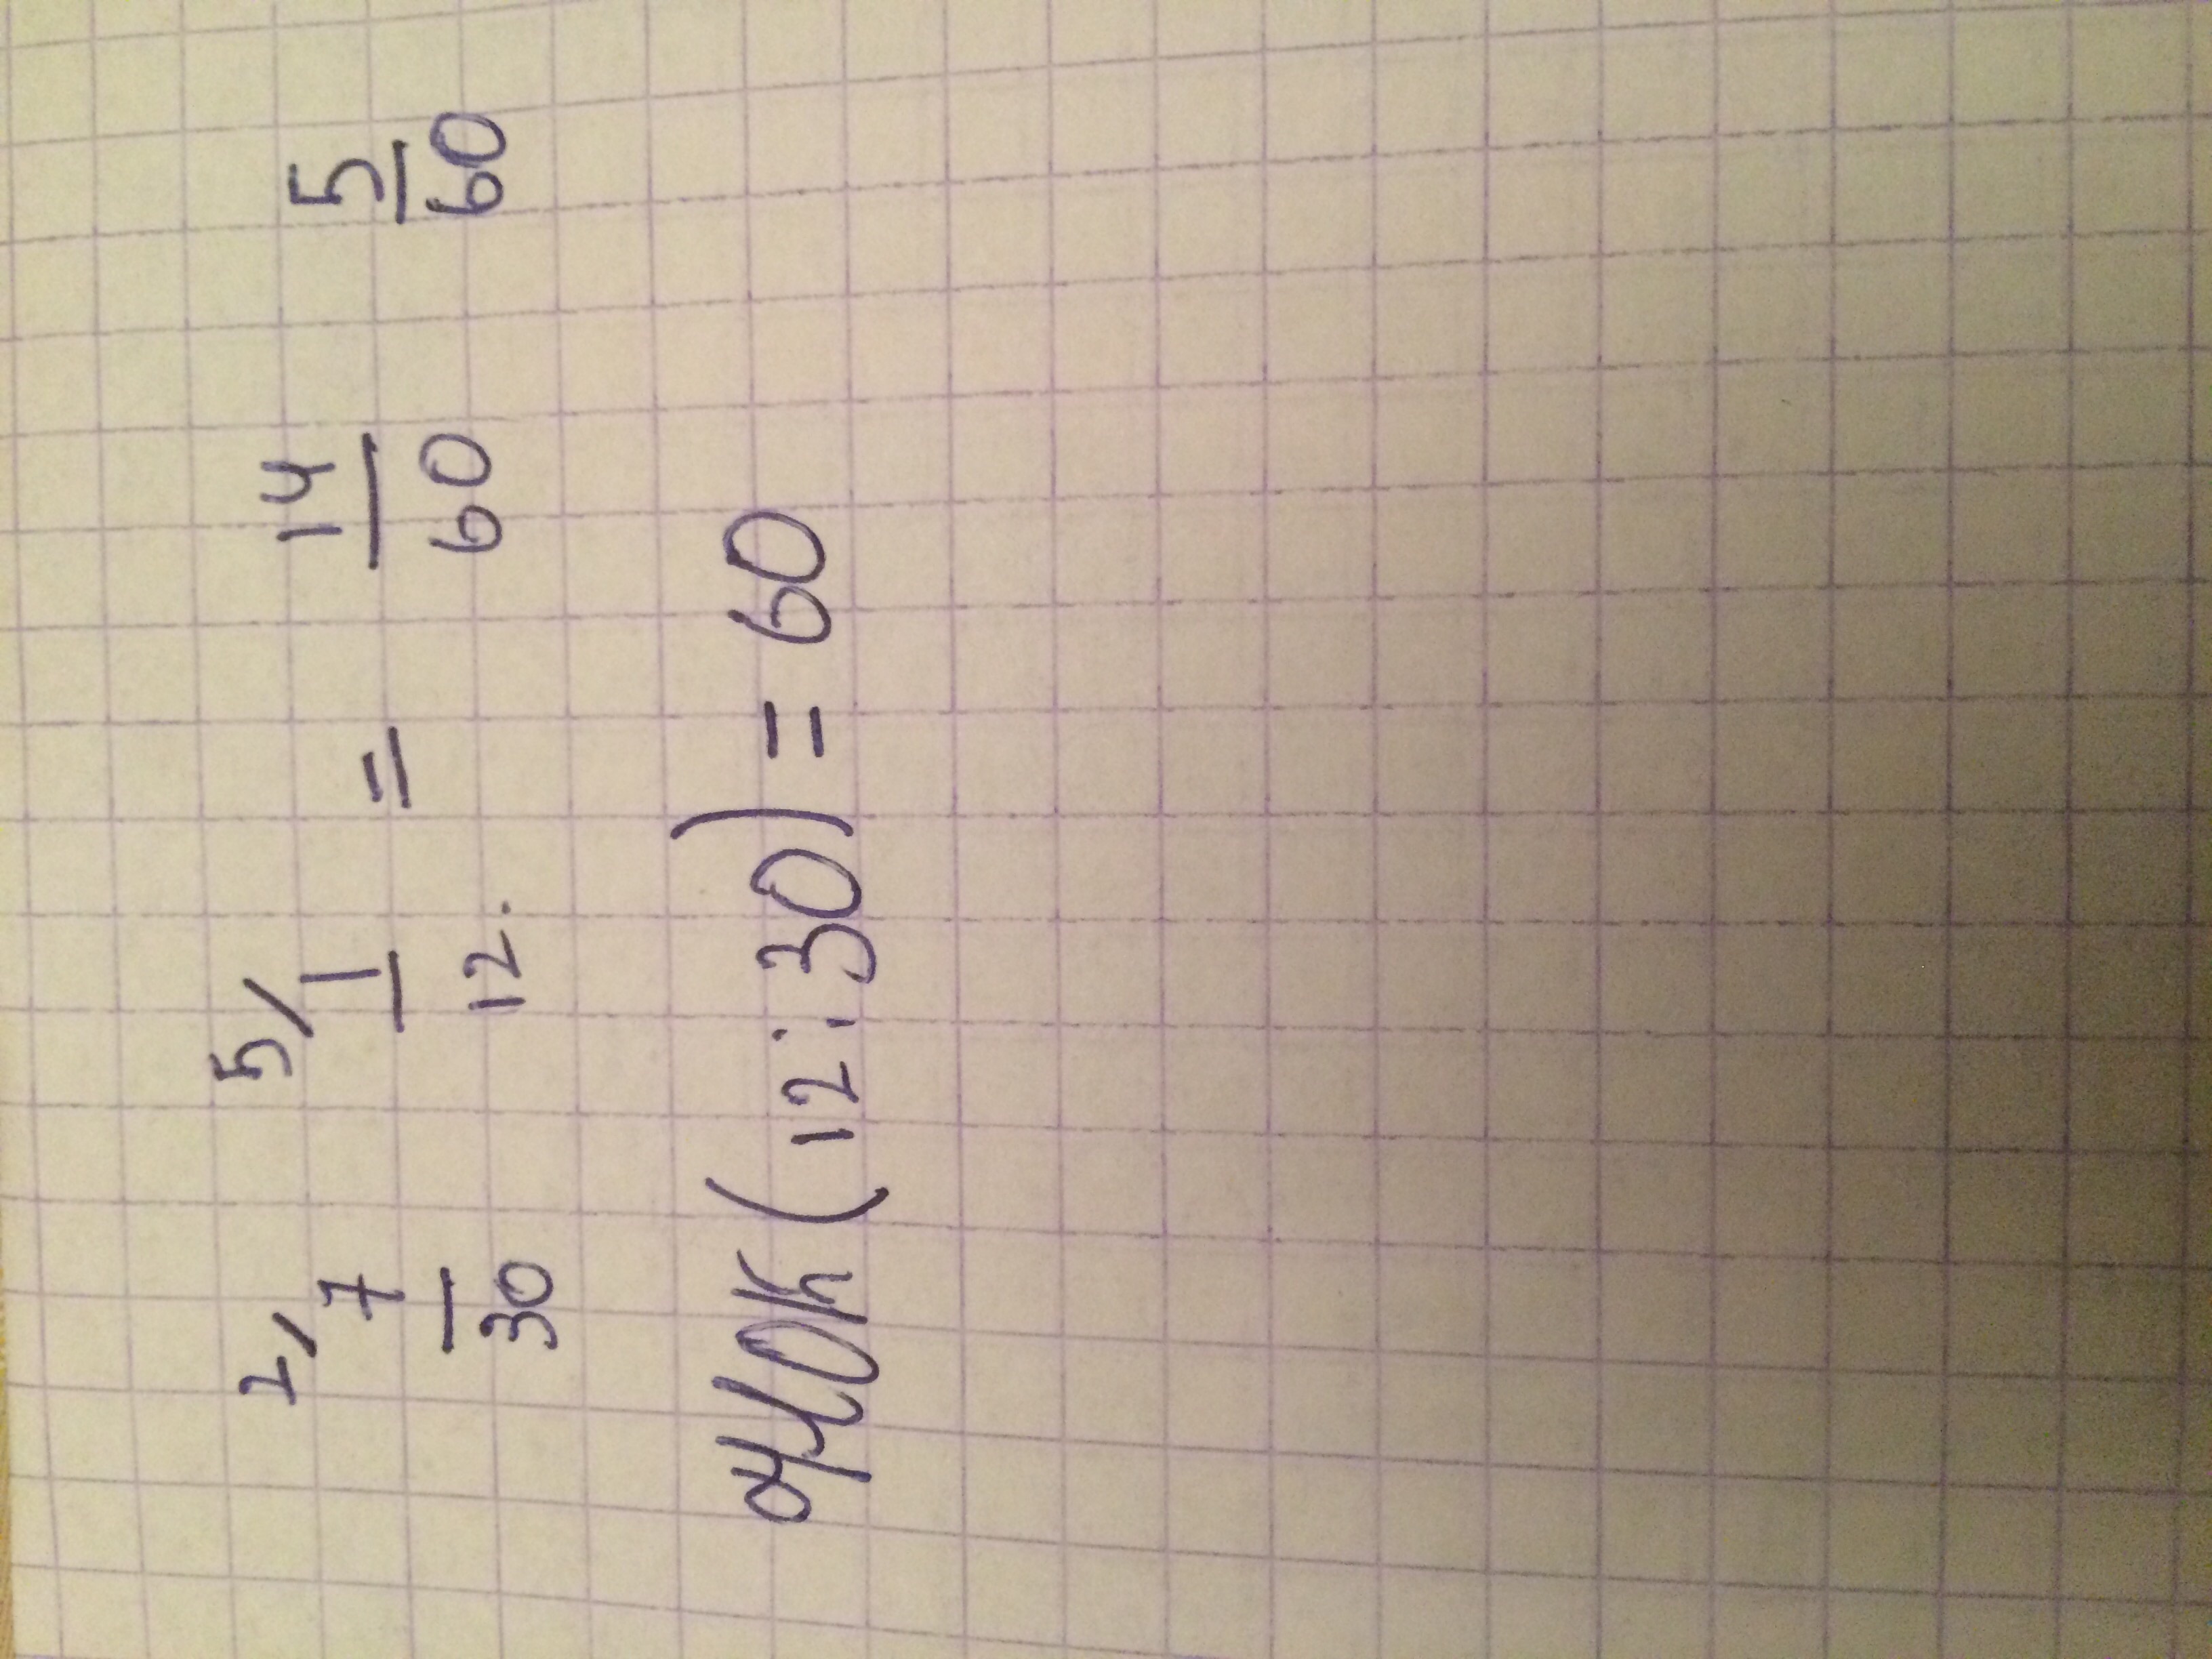 2/ 7/30 5/ 1/12. = 14/60 5/60
(12:30) = 60